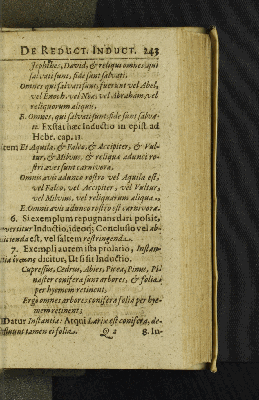 DE REDUCT. INDUCT. 243
Jephthes, David, & reliqui omnes, qui
salvati sunt, fide sunt salvati.
Omnes qui salvati sunt, fuerunt vel Abel,
vel Enoch, vel Noe, vel Abraham, vel
reliquorum aliquis.
E. Omnes, qui salvati sunt, fide sunt salva-
ti. Exstat hæc Inductio in epist. ad
Hebr. cap. 11.
Item Et Aquila, & Falco, & Accipiter, & Vul-
tur, & Milvus, & reliquæ adunci ro-
stri aves sunt carnivoræ.
Omnis avis adunco rostro vel Aquila est,
vel Falco, vel Accipiter, vel Vultur,
vel Milvus, vel reliquarum aliqua.
E. Omnis avis adunco rostro est carnivora.
6. Si exemplum repugnans dari possit,
evertitur Inductio, ideoq; Conclusio vel ab-
jicienda est, vel saltem restringenda.
7. Exempli autem ista prolatio, Instan-
tia dicitur, De<br>sit Inductio.
Cupressus, Cedrus, Abies, Picea, Pinus, Pi-
naster coniferæ sunt arbores, & folia
per hyemem retinent;
Ergo omnes arbores coniferæ folia per hye-
mem retinent;
Datur Instantia: Atqui Larix est conifera, de-
fluunt tamen ei folia.
Q 2 8. In-